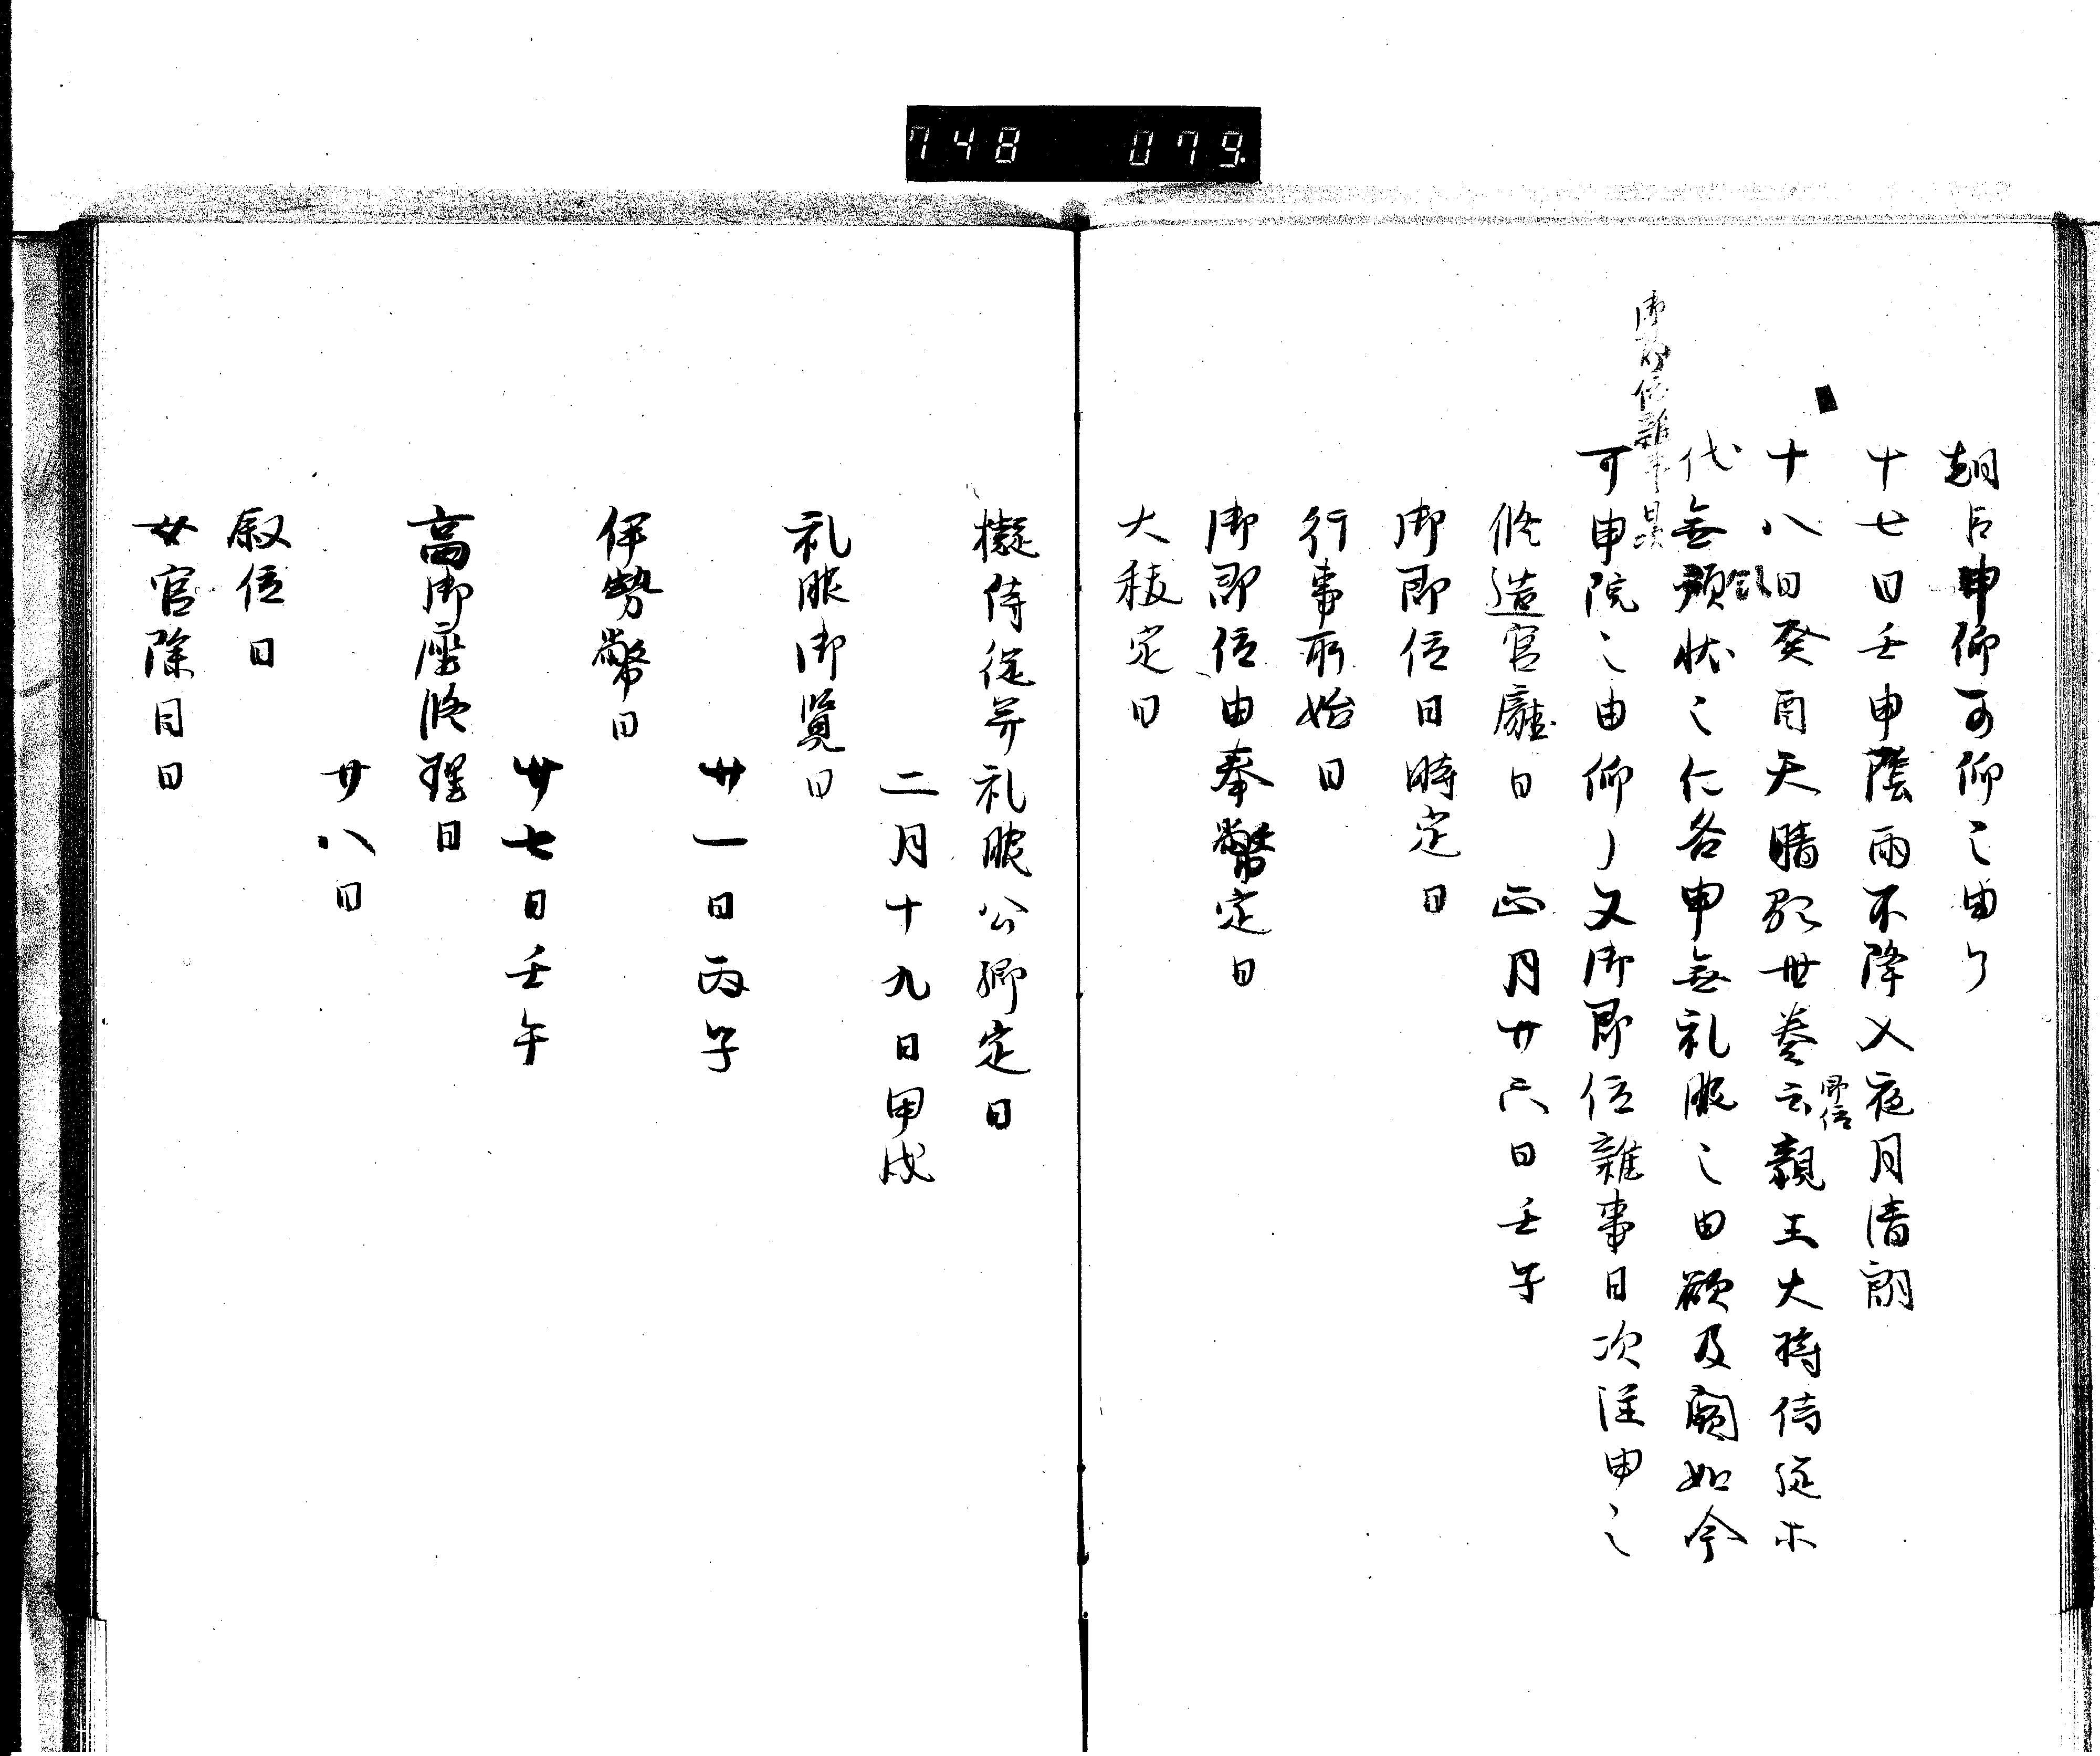 748 079
朝臣申仰可仰之由了
十七日壬申陰雨不降入夜月清朗
十八日癸酉天晴 世 云親王大将侍従ホ
即位
代無領状之仁各申無礼服之由欲及闕如今
御即位雑事日
可申院之由仰了又御即位雑事日次注申之
修造官廳日 正月廿六日壬子
御即位日時定日
行事所始日
御即位由奉幣定日
大秡定日
擬侍従并礼服公卿定日
二月十九日甲戌
礼服御覧日
廿一日丙子
伊勢幣日
廿七日壬午
高御座修理日
廿八日
叙位日
女官除目日